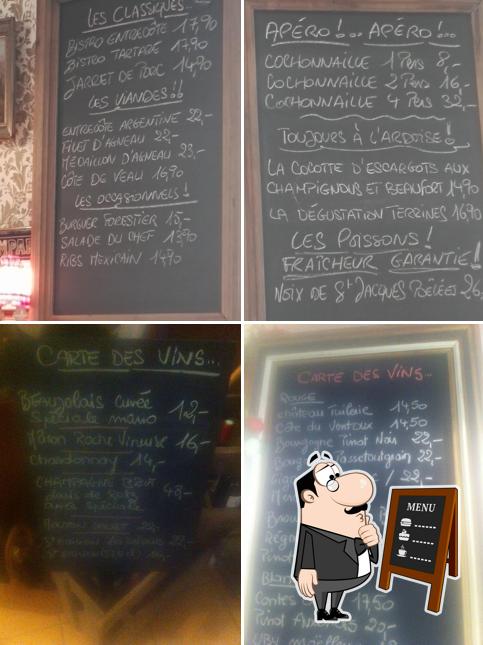 LES CLASSIQUES...
BISTRO ENTRECÔTE 17,90
BISTRO TARTARE 17,90
JARRET DE PORC 14,90
LES VIANDES!!
ENTRECÔTE ARGENTINE 22,-
FILET D'AGNEAU 22,-
MÉDAILLON D'AGNEAU 23,-
CÔTE DE VEAU 16,90
LES OCCASIONNELS!
BURGUER FORESTIER 15,-
SALADE DU CHEF 13,90
RIBS MEXICAIN 14,90
APÉRO!... APÉRO!...
COCHONNAILLE 1 PERS 8,-
COCHONNAILLE 2 PERS 16,-
COCHONNAILLE 4 PERS 32,-
TOUJOURS À L'ARDOISE!
LA COCOTTE D'ESCARGOTS AUX
CHAMPIGNONS ET BEAUFORT 14,90
LA DÉGUSTATION TERRINES 16,90
LES POISSONS!
FRAÎCHEUR GARANTIE!
NOIX DE St JACQUES POÊLÉES 26,
CARTE DES VINS...
BEAUJOLAIS CUVÉE
Spéciale mario 12,-
Mâcon Roche Vineuse 16,-
Chardonnay 14,-
CHAMPAGNE BRUT
48,-
cuvée spéciale
22,-
CARTE DES VINS...
ROUGE
château Tuilerie 14,50
Côte du Ventoux 14,50
Bourgogne Pinot Noir 22,-
Passetoutgrain 22,-
22,-
MENU
17,50
Pinot 20,-